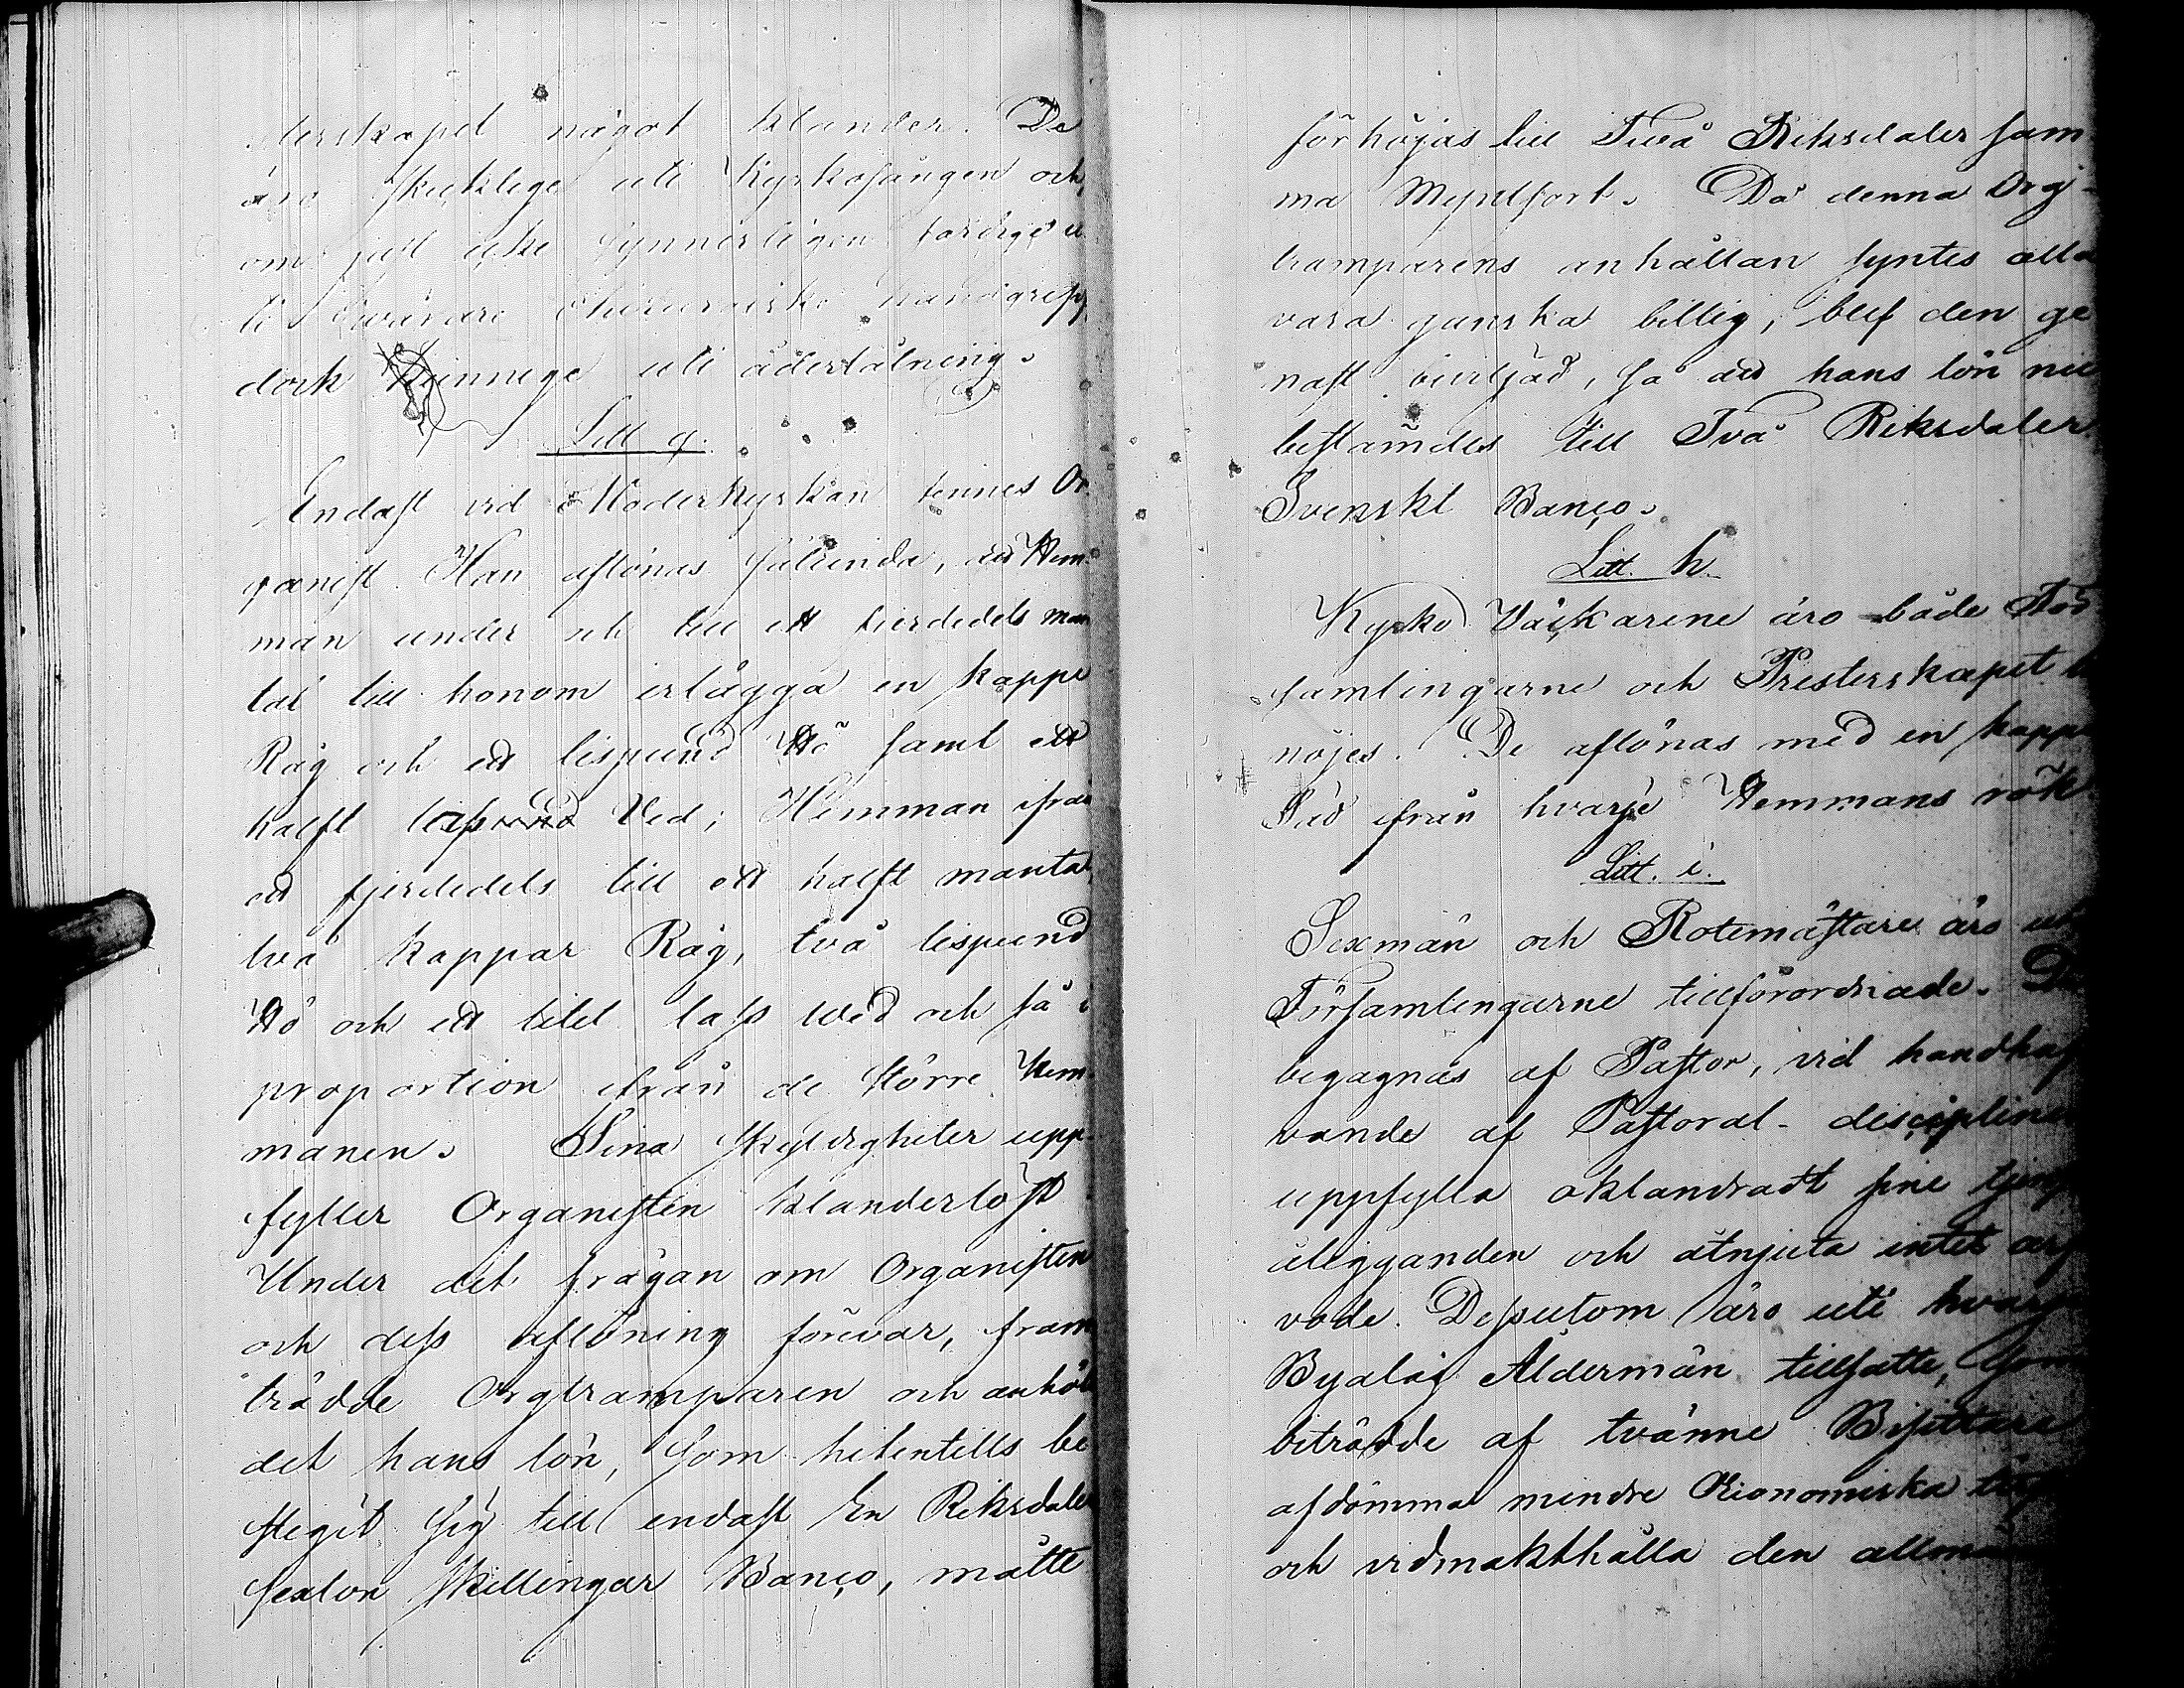 terskapet något klander. De
äro skicklige uti Kyrkosången och,
om just icke synnerligen färdige u
ti svårare Chirurgiske handgrepp,
dock kunnige uti åderlåtning.
Litt g.
Endast vid Moderkyrkan finnes Or
ganist. Han aflönas sålunda, att Hem
man under och till ett fierdedels man
tal till honom erlägga en kappe
Råg och ett lispund Hö samt ett
halft lass Ved; Hemman ifrån
ett fjerdedels till ett halft mantal
två kappar Råg, två lispund
Hö och ett litet lass Ved och så i
proportion ifrån de större Hem
manen. Sina skyldigheter upp
fyller Organisten klanderlöst
Under det frågan om Organisten
och dess aflöning förevar, fram
trädde Orgtramparen och anhöll
det hans lön, som hitentills be
stegit sig till endast En Riksdaler
sexton skillingar Banco, måtte
förhöjas till Två Riksdaler sam
ma Myntsort. Då denna Org-
tramparens anhållan syntes alla
vara ganska billig, blef den ge
nast biträd, så att hans lön nu
bestämdes till Två Riksdaler
Svenskt Banco.
Litt. h.
Kyrko Väckarene äro både För
samlingarne och Presterskapet til
nöjes. De aflönas med en kappe
Säd ifrån hvarje Hemmans rök
Litt. i.
Sexmän och Rotemästare äro uti
Församlingarne tillförordnade. De
begagnas af Pastor, vid handhaf
vande af Pastoral-disciplinen
uppfylla oklandradt sine tjenst
åligganden och åtnjuta intet arf
vode. Dessutom äro uti hvarje
Byalag Åldermän tillsatte, som
biträdde af tvänne Bisittare
afdömma mindre Œconomiska
och vidmakthålla den allmän